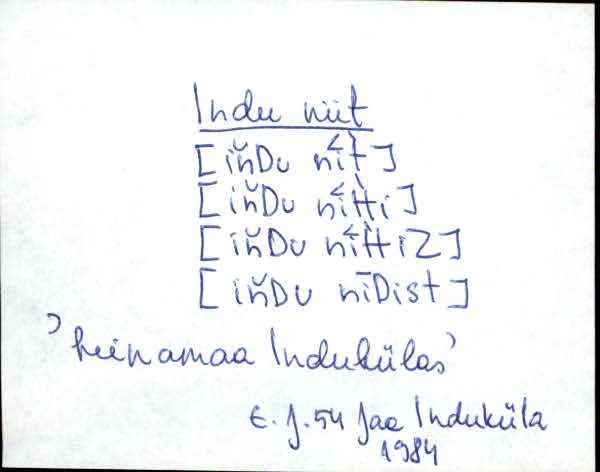 Indu niit
[iň̆Du nìt]
[iň̆Du nìtti]
[iň̆Du nìttiZ]
[iň̆Du nīDist]
'heinamaa Indukülas'
E. J. 54 Jaa Induküla
1984